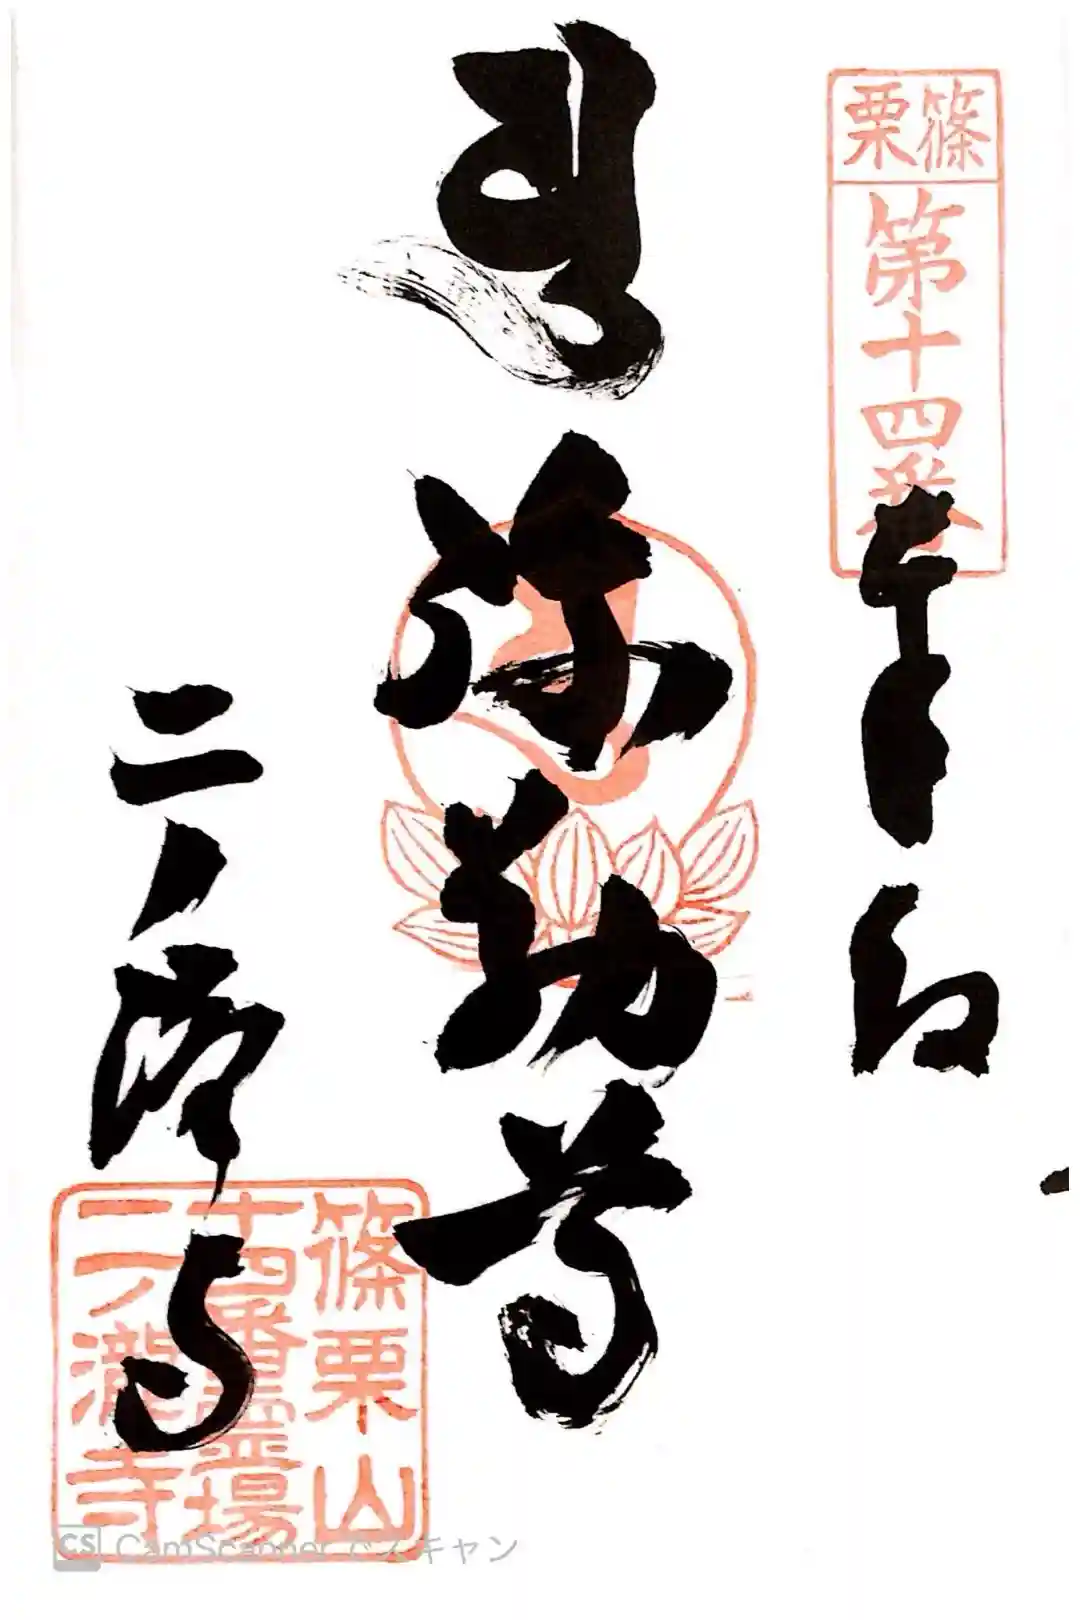 篠栗
第十四番
奉
印
弥勒尊
二ノ滝寺
篠栗山
十四番霊場
二ノ瀧寺
CS CamScannerでスキャン